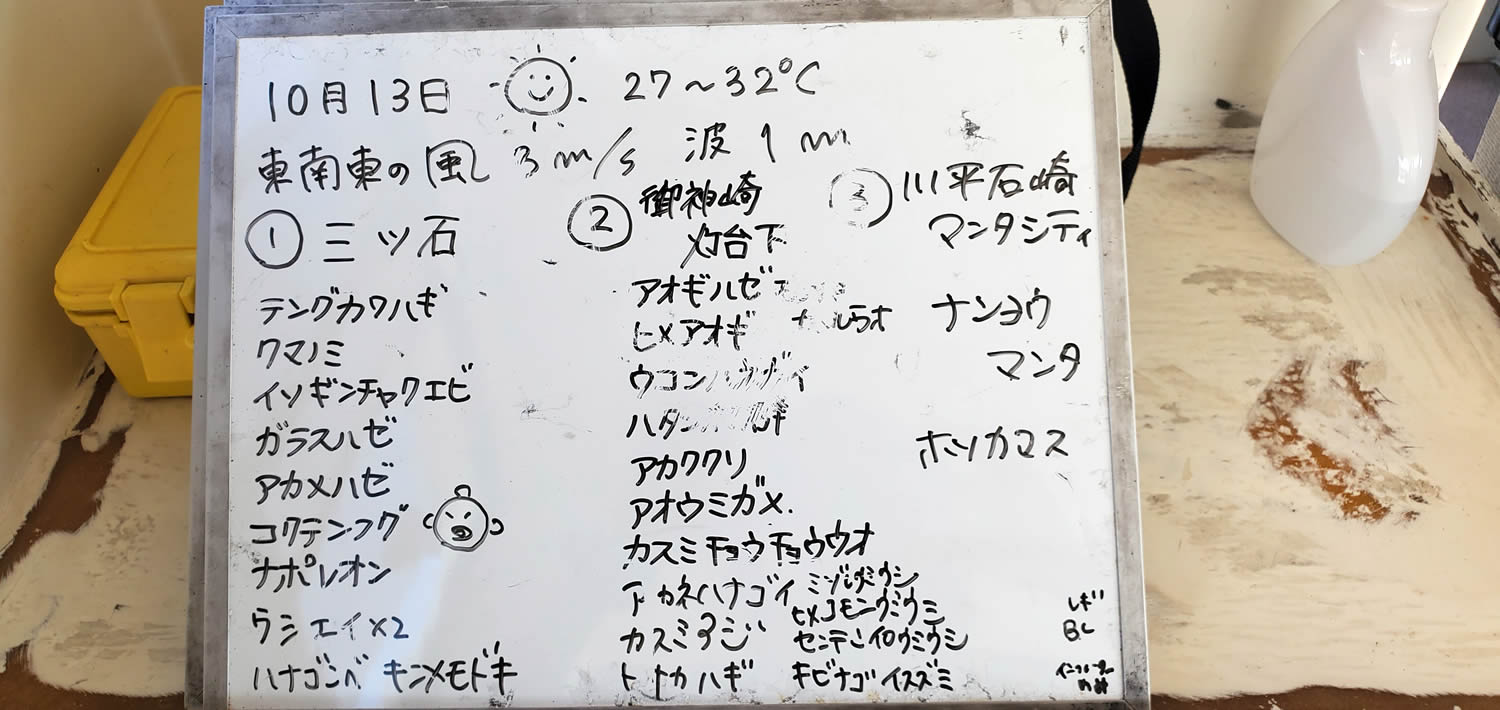 10月13日 27～32℃
東南東の風 3m/s 波1m
① 三ツ石
テングカワハギ
クマノミ
イソギンチャクエビ
ガラスハゼ
アカメハゼ
コクテンフグ
ナポレオン
ウシエイ×2
ハナゴンベ キンメモドキ
② 御神崎
灯台下
アオギハゼ
ヒメアオギ
ウコン
ハタ
アカククリ
アオウミガメ.
カスミチョウチョウウオ
アカネハナゴイ ミゾレウミウシ
ヒメコモンウミウシ
カスミアジ センテンイロウミウシ
トサカハギ キビナゴ イスズミ
③ 川平石崎
マンタシティ
ナンヨウ
マンタ
ホソカマス
レギ
BC